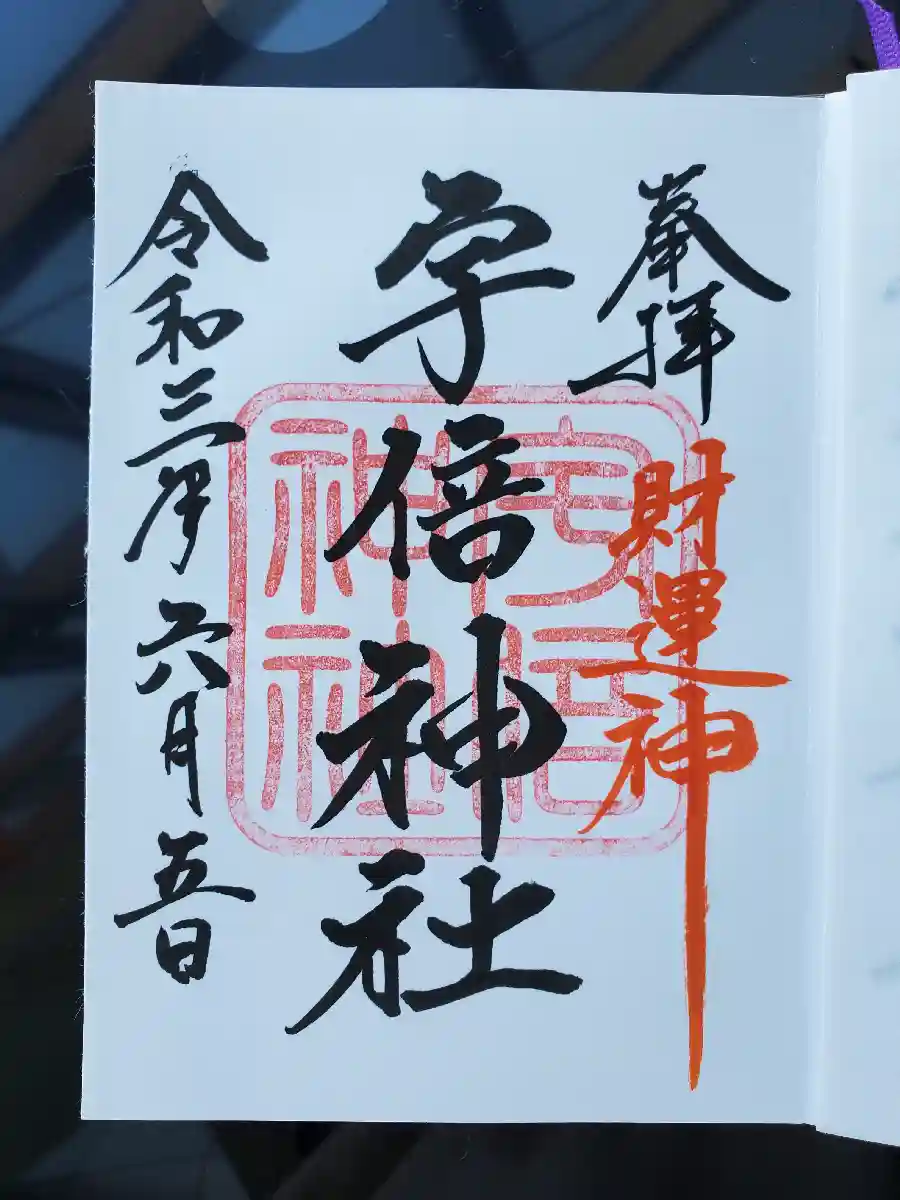 奉拝
財運神
宇倍神社
宇倍
神社
令和三年六月五日